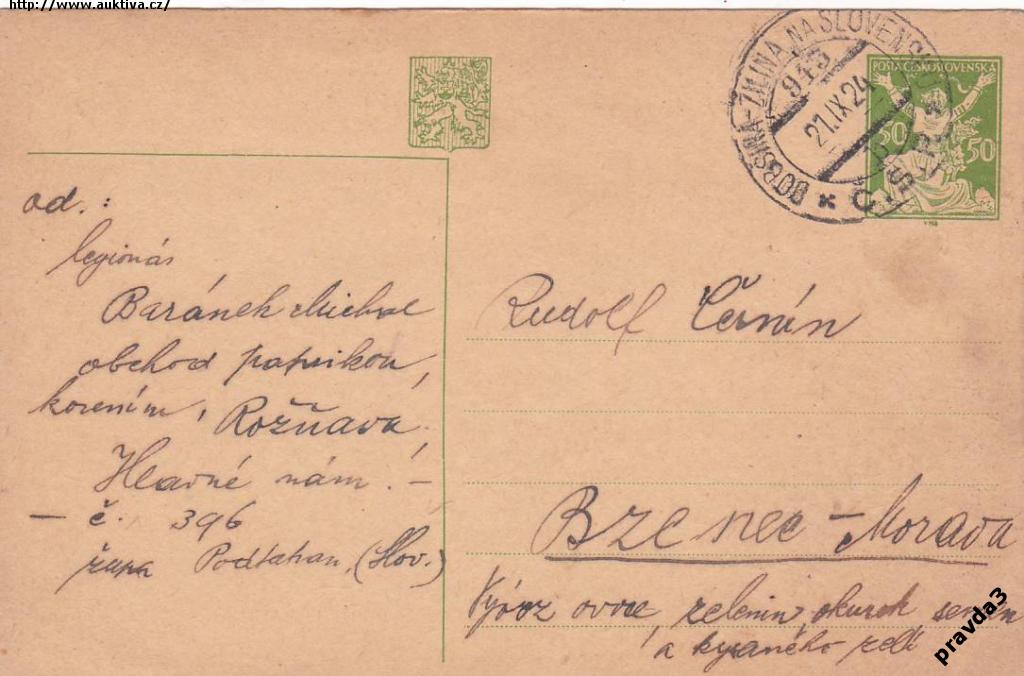 http://www.auktiva.cz/
DOBŠINÁ-ŽILINA NA SLOVENSKU
943
21.IX 24
* Č.S.P. *
POŠTA ČESKOSLOVENSKÁ
50 50
od.:
legionár
Baránek Michal
obchod paprikou,
korením, Rožňava.
Hlavné nám. -
- č. 396
župa Podtatran. (Slov.)
Rudolf Černín
Bzenec - Morava
Vývoz ovoce, zelenin, okurek, semen
a kysaného zelí
pravda3